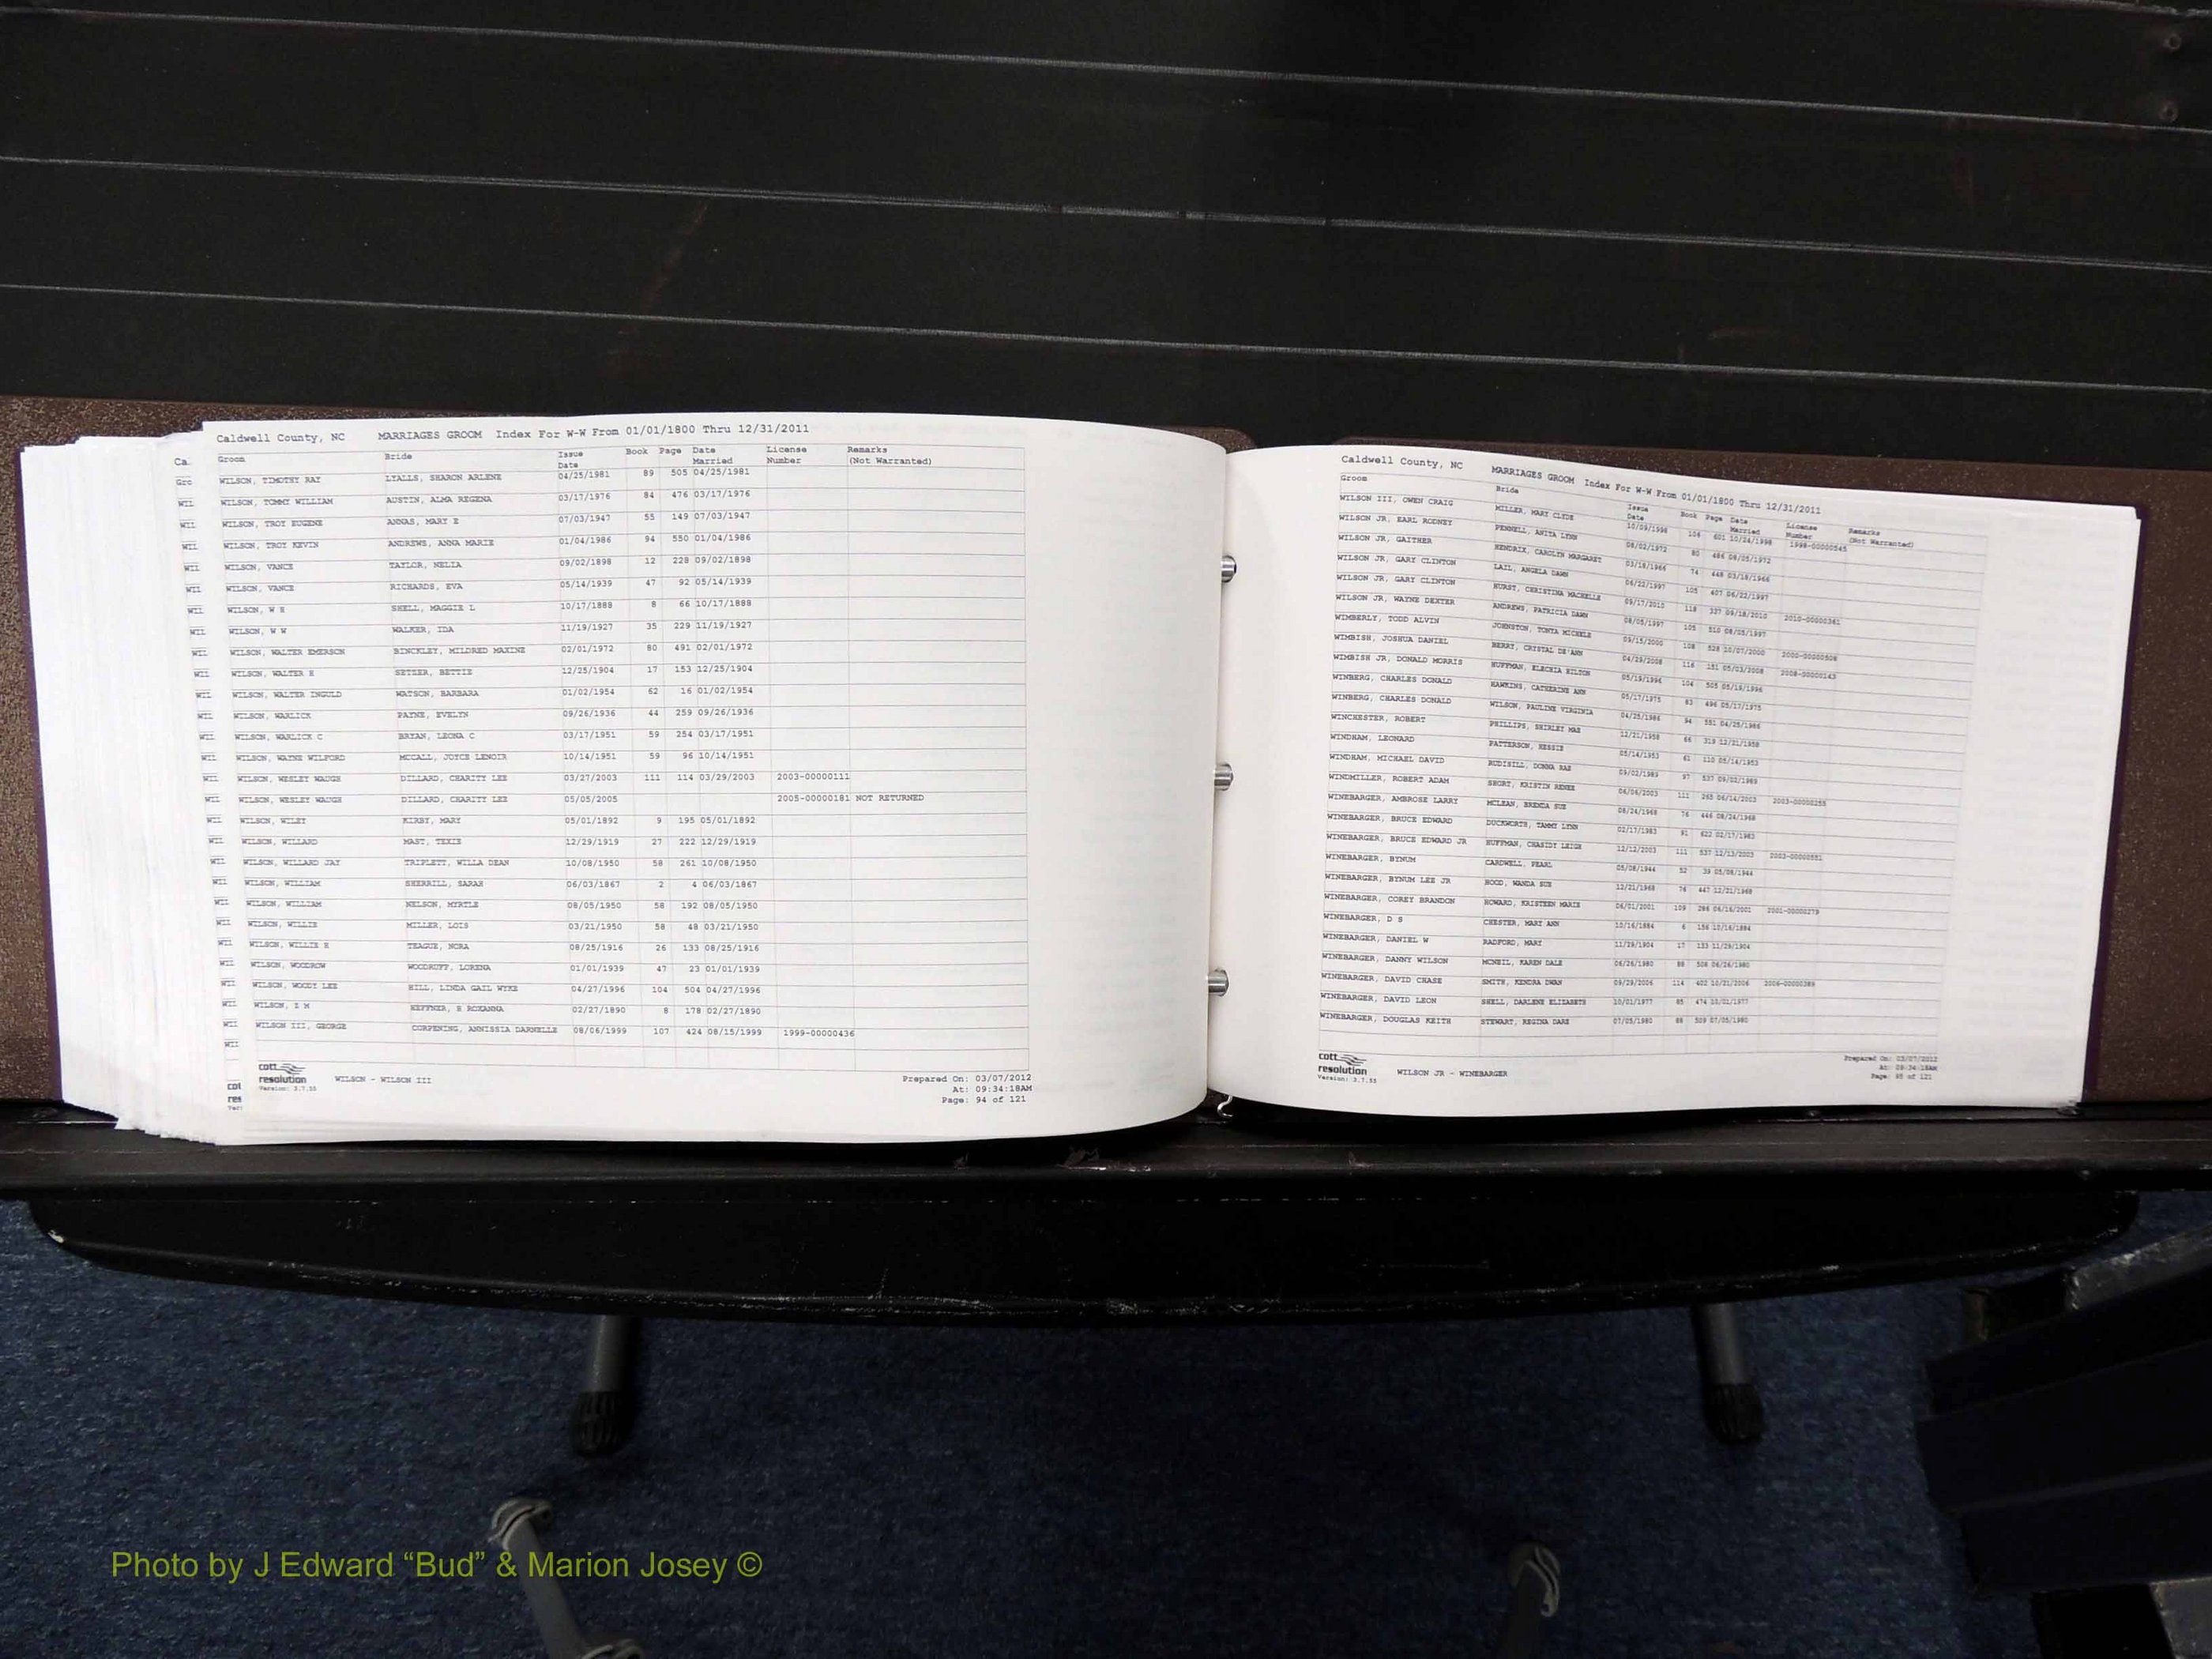 Caldwell County, NC MARRIAGES GROOM Index For W-W From 01/01/1800 Thru 12/31/2011
Groom Bride Issue Date Book Page Date Married License Number Remarks (Not Warranted)
WILSON, TIMOTHY RAY LYALLS, SHARON ARLENE 04/25/1981 89 505 04/25/1981
WILSON, TOMMY WILLIAM AUSTIN, ALMA REGENA 03/17/1976 84 476 03/17/1976
WILSON, TROY EUGENE ANNAS, MARY E 07/03/1947 55 149 07/03/1947
WILSON, TROY KEVIN ANDREWS, ANNA MARIE 01/04/1986 94 550 01/04/1986
WILSON, VANCE TAYLOR, NELIA 09/02/1898 12 228 09/02/1898
WILSON, VANCE RICHARDS, EVA 05/14/1939 47 92 05/14/1939
WILSON, W E SHELL, MAGGIE L 10/17/1888 8 66 10/17/1888
WILSON, W W WALKER, IDA 11/19/1927 35 229 11/19/1927
WILSON, WALTER EMERSON BINCKLEY, MILDRED MAXINE 02/01/1972 80 491 02/01/1972
WILSON, WALTER H SETZER, BETTIE 12/25/1904 17 153 12/25/1904
WILSON, WALTER INGOLD WATSON, BARBARA 01/02/1954 62 16 01/02/1954
WILSON, WARLICK PAYNE, EVELYN 09/26/1936 44 259 09/26/1936
WILSON, WARLICK C BRYAN, LEONA C 03/17/1951 59 254 03/17/1951
WILSON, WAYNE WILFORD MCCALL, JOYCE LENOIR 10/14/1951 59 96 10/14/1951
WILSON, WESLEY WAUGH DILLARD, CHARITY LEE 03/27/2003 111 114 03/29/2003 2003-00000111
WILSON, WESLEY WAUGH DILLARD, CHARITY LEE 05/05/2005 2005-00000181 NOT RETURNED
WILSON, WILEY KIRBY, MARY 05/01/1892 9 195 05/01/1892
WILSON, WILLARD MAST, TEXIE 12/29/1919 27 222 12/29/1919
WILSON, WILLARD JAY TRIPLETT, WILLA DEAN 10/08/1950 58 261 10/08/1950
WILSON, WILLIAM SHERRILL, SARAH 06/03/1867 2 4 06/03/1867
WILSON, WILLIAM NELSON, MYRTLE 08/05/1950 58 192 08/05/1950
WILSON, WILLIE MILLER, LOIS 03/21/1950 58 48 03/21/1950
WILSON, WILLIE E TEAGUE, NORA 08/25/1916 26 133 08/25/1916
WILSON, WOODROW WOODRUFF, LORENA 01/01/1939 47 23 01/01/1939
WILSON, WOODY LEE HILL, LINDA GAIL WYKE 04/27/1996 104 504 04/27/1996
WILSON, Z M HEFFNER, E ROXANNA 02/27/1890 8 178 02/27/1890
WILSON III, GEORGE CORPENING, ANNISSIA DARNELLE 08/06/1999 107 424 08/15/1999 1999-00000436
cott resolution Version: 3.7.55
WILSON - WILSON III
Prepared On: 03/07/2012
At: 09:34:18AM
Page: 94 of 121
Caldwell County, NC MARRIAGES GROOM Index For W-W From 01/01/1800 Thru 12/31/2011
Groom Bride Issue Date Book Page Date Married License Number Remarks (Not Warranted)
WILSON III, OWEN CRAIG MILLER, MARY CLYDE 10/09/1998 106 601 10/24/1998 1998-00000545
WILSON JR, EARL RODNEY PENNELL, ANITA LYNN 08/02/1972 80 486 08/05/1972
WILSON JR, GAITHER HENDRIX, CAROLYN MARGARET 03/18/1966 74 448 03/18/1966
WILSON JR, GARY CLINTON LAIL, ANGELA DAWN 06/22/1997 105 407 06/22/1997
WILSON JR, GARY CLINTON HURST, CHRISTINA MACHELLE 09/17/2010 118 337 09/18/2010 2010-00000361
WILSON JR, WAYNE DEXTER ANDREWS, PATRICIA DAWN 08/05/1997 105 510 08/05/1997
WIMBERLY, TODD ALVIN JOHNSTON, TONYA MICHELE 09/15/2000 108 528 10/07/2000 2000-00000508
WIMBISH, JOSHUA DANIEL BERRY, CRISTAL DE'ANN 04/29/2008 116 151 05/03/2008 2008-00000143
WIMBISH JR, DONALD MORRIS HUFFMAN, ELECHIA HILTON 05/19/1996 104 505 05/19/1996
WINBERG, CHARLES DONALD HAWKINS, CATHERINE ANN 05/17/1975 83 496 05/17/1975
WINBERG, CHARLES DONALD WILSON, PAULINE VIRGINIA 04/25/1986 94 551 04/25/1986
WINCHESTER, ROBERT PHILLIPS, SHIRLEY MAE 12/21/1958 66 319 12/21/1958
WINDHAM, LEONARD PATTERSON, HESSIE 05/14/1953 61 110 05/14/1953
WINDHAM, MICHAEL DAVID RUDISILL, DONNA RAE 09/02/1989 97 537 09/02/1989
WINDMILLER, ROBERT ADAM SHORT, KRISTIN RENEE 06/06/2003 111 265 06/14/2003 2003-00000255
WINEBARGER, AMBROSE LARRY MCLEAN, BRENDA SUE 08/24/1968 76 446 08/24/1968
WINEBARGER, BRUCE EDWARD DUCKWORTH, TAMMY LYNN 02/17/1983 91 622 02/17/1983
WINEBARGER, BRUCE EDWARD JR HUFFMAN, CHASIDY LEIGH 12/12/2003 111 537 12/13/2003 2003-00000551
WINEBARGER, BYNUM CARDWELL, PEARL 05/08/1944 52 39 05/08/1944
WINEBARGER, BYNUM LEE JR HOOD, WANDA SUE 12/21/1968 76 447 12/21/1968
WINEBARGER, COREY BRANDON HOWARD, KRISTEEN MARIE 06/01/2001 109 286 06/16/2001 2001-00000279
WINEBARGER, D S CHESTER, MARY ANN 10/16/1884 6 156 10/16/1884
WINEBARGER, DANIEL W RADFORD, MARY 11/29/1904 17 133 11/29/1904
WINEBARGER, DANNY WILSON MCNEIL, KAREN DALE 06/26/1980 88 508 06/26/1980
WINEBARGER, DAVID CHASE SMITH, KENDRA DWAN 09/29/2006 114 402 10/21/2006 2006-00000389
WINEBARGER, DAVID LEON SHELL, DARLENE ELIZABETH 10/01/1977 85 474 10/01/1977
WINEBARGER, DOUGLAS KEITH STEWART, REGINA DARE 07/05/1980 88 509 07/05/1980
cott resolution Version: 3.7.55
WILSON JR - WINEBARGER
Prepared On: 03/07/2012
At: 09:34:18AM
Page: 95 of 121
Photo by J Edward “Bud” & Marion Josey ©